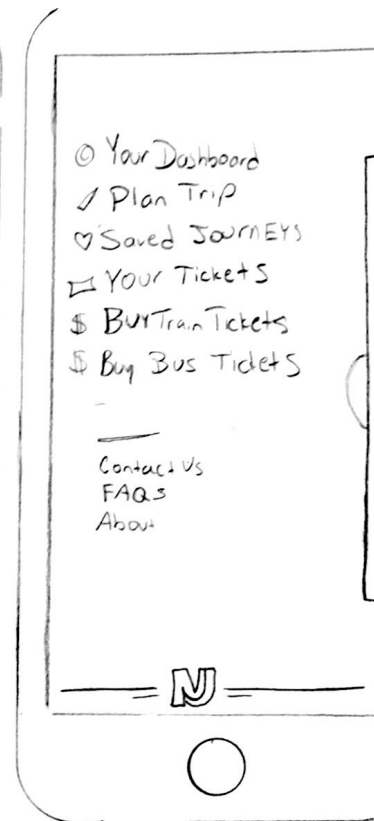 Your Dashboard
Plan Trip
Saved Journeys
Your Tickets
$ Buy Train Tickets
$ Buy Bus Tickets
Contact Us
FAQs
About
NJ